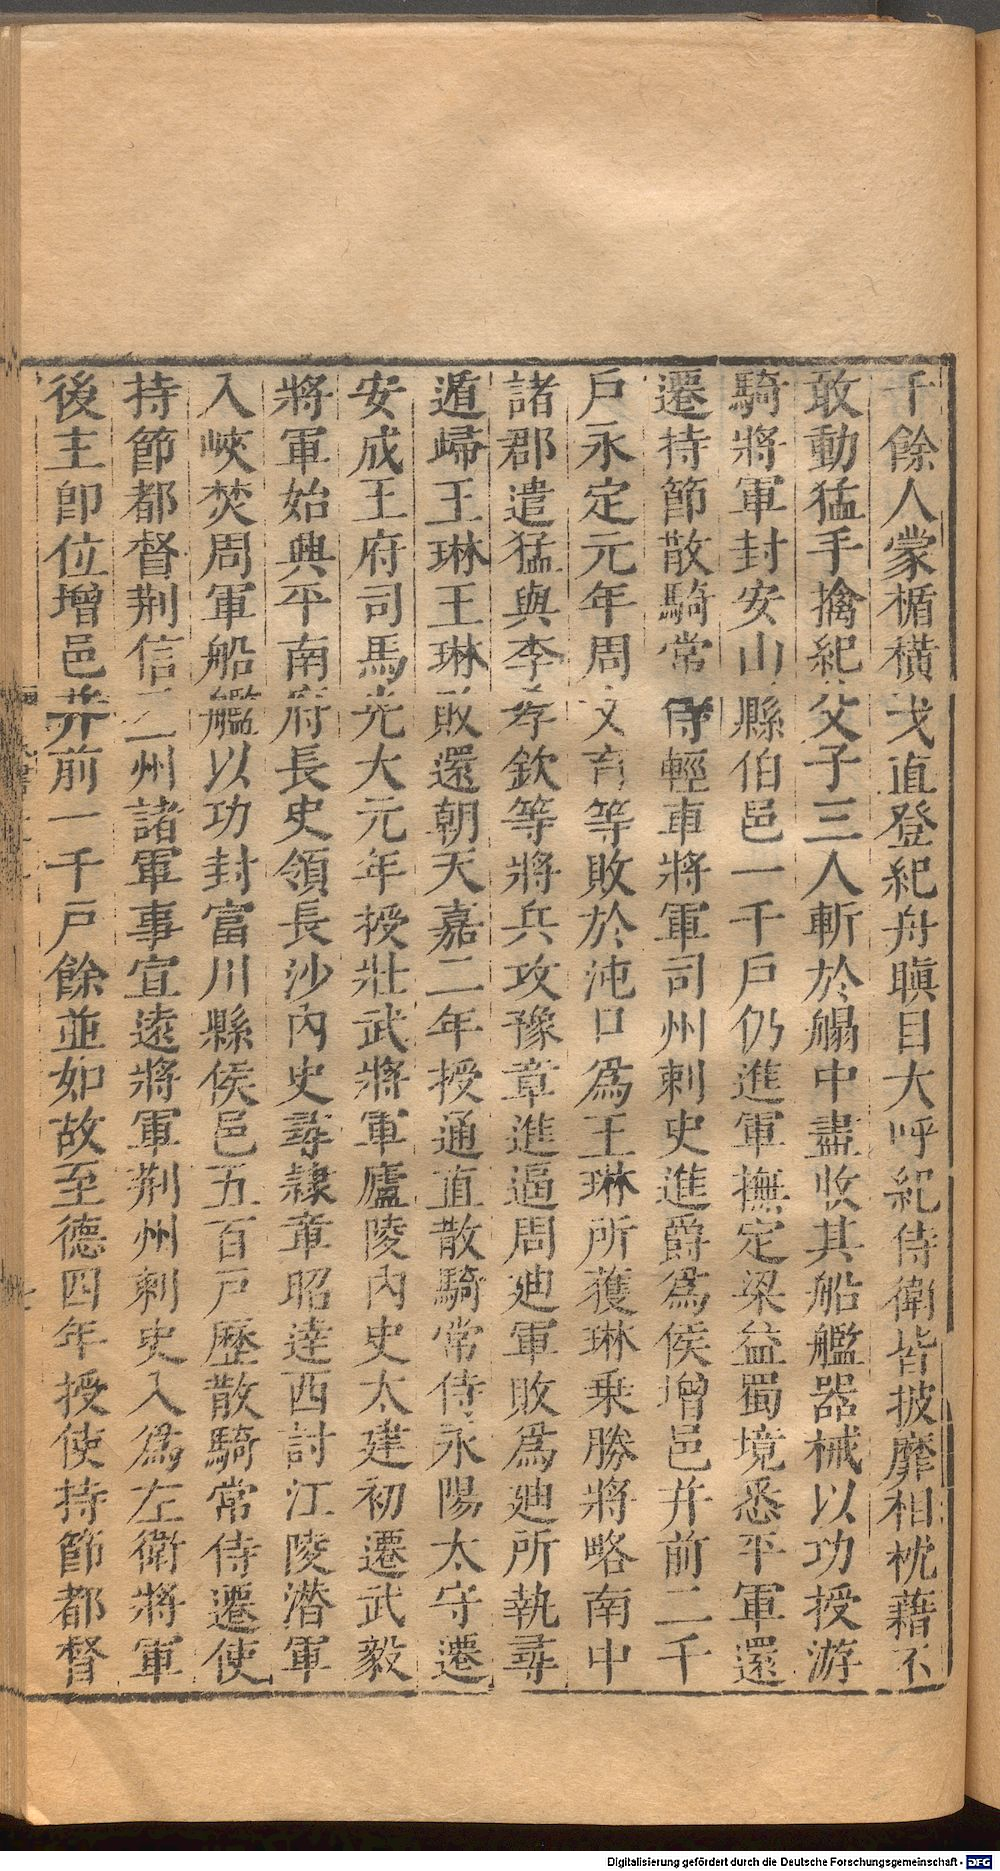 千餘人蒙楯橫戈直登紀舟瞋目大呼紀侍衛皆披靡相枕藉不
敢動猛手擒紀父子三人斬於艒中盡收其船艦器械以功授游
騎將軍封安山縣伯邑一千戶仍進軍撫定梁益蜀境悉平軍還
遷持節散騎常侍輕車將軍司州刺史進爵爲侯增邑并前二千
戶永定元年周文育等敗於沌口爲王琳所獲琳乗勝將略南中
諸郡遣猛與李孝欽等將兵攻豫章進逼周迪軍敗爲迪所執尋
遁歸王琳王琳敗還朝天嘉二年授通直散騎常侍永陽太守遷
安成王府司馬光大元年授壯武將軍廬陵內史太建初遷武毅
將軍始興平南府長史領長沙內史尋隸章昭達西討江陵潛軍
入峽焚周軍船艦以功封富川縣侯邑五百戶歷散騎常侍遷使
持節都督荆信二州諸軍事宣遠將軍荆州刺史入爲左衛將軍
後主卽位增邑并前一千戶餘並如故至德四年授使持節都督
Digitalisierung gefördert durch die Deutsche Forschungsgemeinschaft - DFG